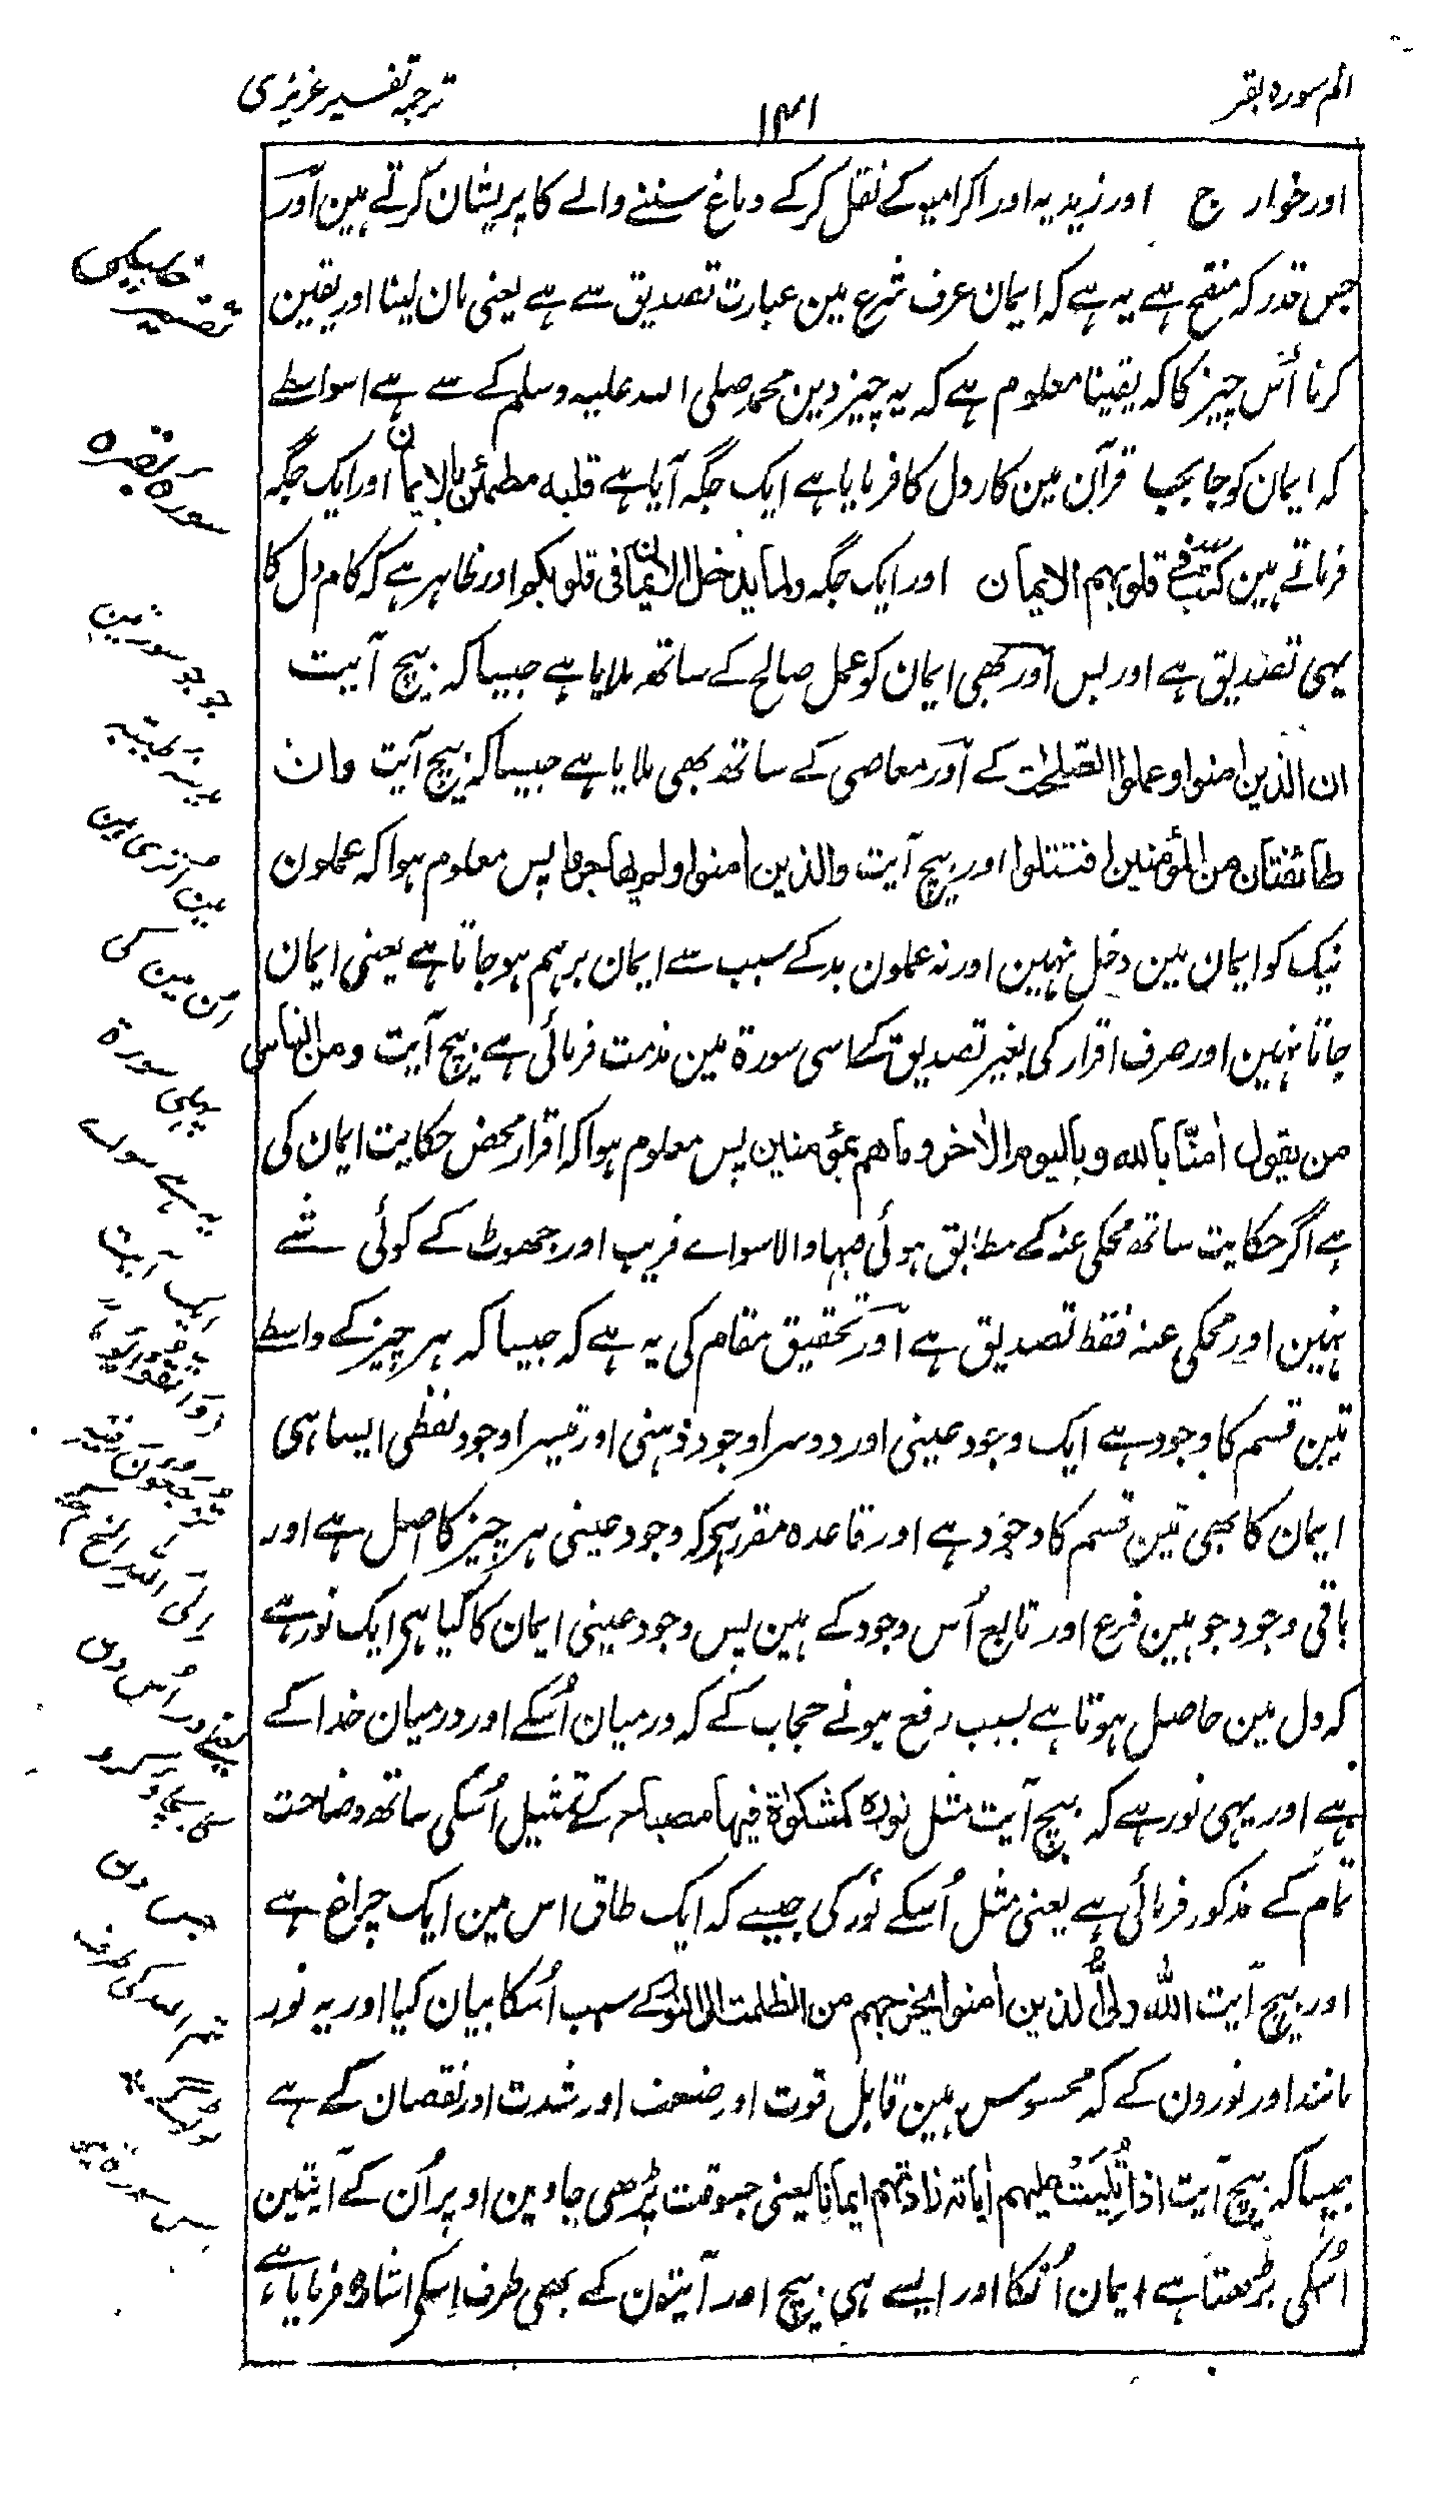 الم سورہ بقر
۱۴۱
ترجمہ تفسیر عزیزی
اور خوارج اور زیدیہ اور اکرامیو کے نقل کر کے دماغ سننے والے کا پریشان کرتے ہین اور
جس قدر کہ منقح ہے یہ ہے کہ ایمان عرف شرع مین عبارت تصدیق سے ہے یعنی مان لینا اور یقین
کرنا اُس چیز کا کہ یقینا معلوم ہے کہ یہ چیز دین محمد صلی اللہ علیہ وسلم کے سے ہے اسواسطے
کہ ایمان کو جا بجا قرآن مین کار دل کا فرمایا ہے ایک جگہ آیا ہے قلبه مطمئن بالایمان اور ایک جگہ
فرماتے ہین کتب فے قلوبہم الایمان اور ایک جگہ ولما یدخل الایمان فی قلوبکم اور ظاہر ہے کہ کام دل کا
یہی تصدیق ہے اور بس اور کبھی ایمان کو عمل صالح کے ساتھ ملایا ہے جیسا کہ بیچ آیت
ان الذین امنوا وعملوا الصّٰلحٰت کے اور معاصی کے ساتھ بھی ملایا ہے جیسا کہ بیچ آیت وان
طائفتان من المؤمنین اقتتلوا اور بیچ آیت والذین اٰمنوا ولم یهاجروا پس معلوم ہوا کہ عملون
نیک کو ایمان مین دخل نہین اور نہ عملون بد کے سبب سے ایمان برہم ہو جاتا ہے یعنی ایمان
جاتا نہین اور صرف اقرار کی بغیر تصدیق کے اسی سورۃ مین مذمت فرمائی ہے بیچ آیت ومن الناس
من یقول اٰمنّا باللہ وبالیوم الاٰخر وما هم بمؤمنین پس معلوم ہوا کہ اقرار محض حکایت ایمان کی
ہے اگر حکایت ساتھ محکی عنہ کے مطابق ہوئی فبہا والا سواے فریب اور جھوٹ کے کوئی شے
نہین اور محکی عنہ فقط تصدیق ہے اور تحقیق مقام کی یہ ہے کہ جیسا کہ ہر چیز کے واسطے
تین قسم کا وجود ہے ایک وجود عینی اور دوسرا وجود ذہنی اور تیسرا وجود لفظی ایسا ہی
ایمان کا بھی تین قسم کا وجود ہے اور قاعدہ مقرر ہی کہ وجود عینی ہر چیز کا اصل ہے اور
باقی وجود جو ہین فرع اور تابع اُس وجود کے ہین پس وجود عینی ایمان کا کیا ہی ایک نور ہے
کہ دل مین حاصل ہوتا ہے بسبب رفع ہونے حجاب کے کہ درمیان اُسکے اور درمیان خدا کے
ہے اور یہی نور ہے کہ بیچ آیت مثل نورہ کمشکوٰۃ فیہا مصباح کے تمثیل اُسکی ساتھ وضاحت
تمام کے مذکور فرمائی ہے یعنی مثل اُسکے نور کی جیسے کہ ایک طاق اس مین ایک چراغ ہے
اور بیچ آیت اللہ ولیُّ الذین اٰمنوا یخرجہم من الظلمت الی النور کے سبب اُسکا بیان کیا اور یہ نور
مانند اور نورون کے کہ محسوس ہین قابل قوت اور ضعف اور شدت اور نقصان کے ہے
جیسا کہ بیچ آیت اذا تُلیَت علیہم اٰیاتہ زادتہم ایمانا یعنی جسوقت پڑھی جاوین اوپر اُن کے آیتین
اُسکی بڑھتا ہے ایمان اُنکا اور ایسے ہی بیچ اور آیتون کے بھی طرف اِسکی اشارہ فرمایا ہے
سورہ بقرہ
جو جو سورتین
مین اتری ہین
اُن مین کی
پہلی سورۃ
آیت
وَاتَّقُوا یَوْمًا
تُرْجَعُونَ فِیْهِ
اِلَی اللهِ الخ
اُس دن
جس دن
تم اللہ کی طرف